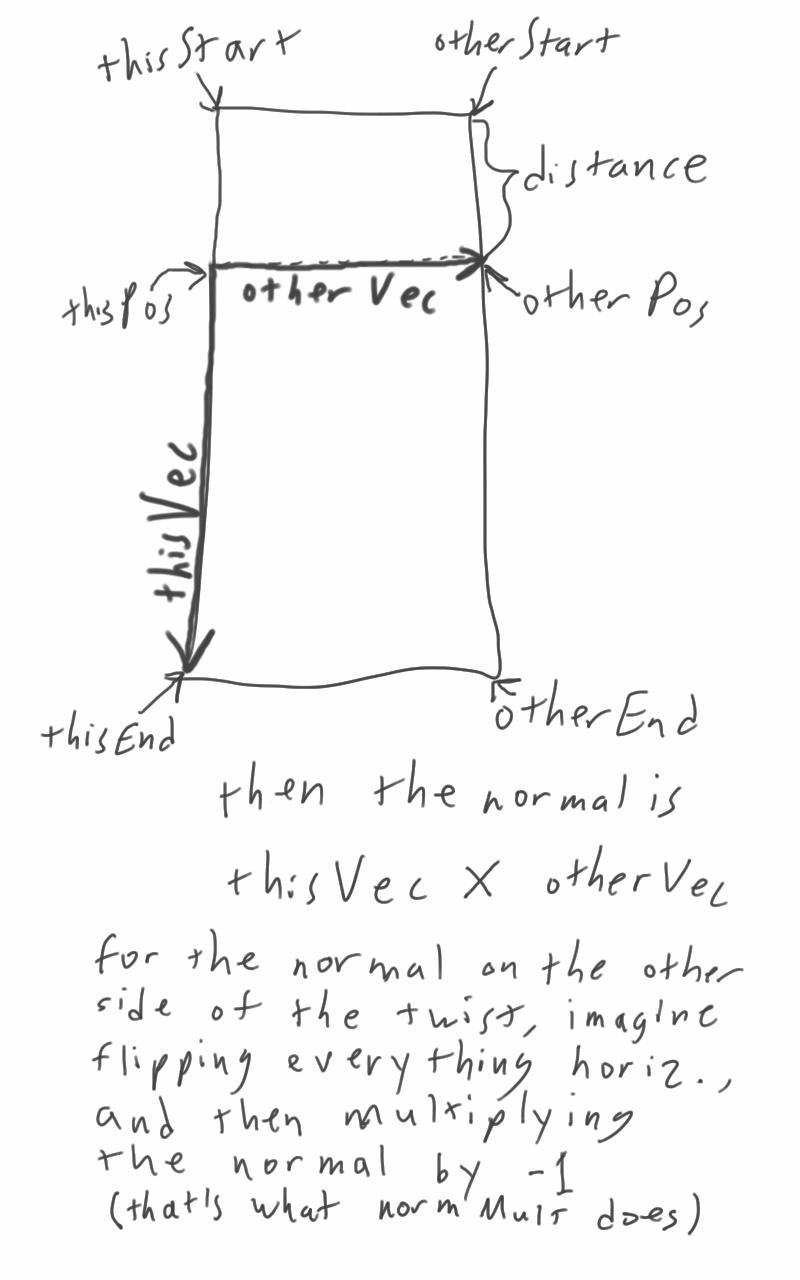 thisStart
otherStart
distance
otherVec
thisPos
otherPos
thisVec
thisEnd
otherEnd
then the normal is
thisVec X otherVec
for the normal on the other
side of the twist, imagine
flipping everything horiz.,
and then multiplying
the normal by -1
(that's what normMult does)